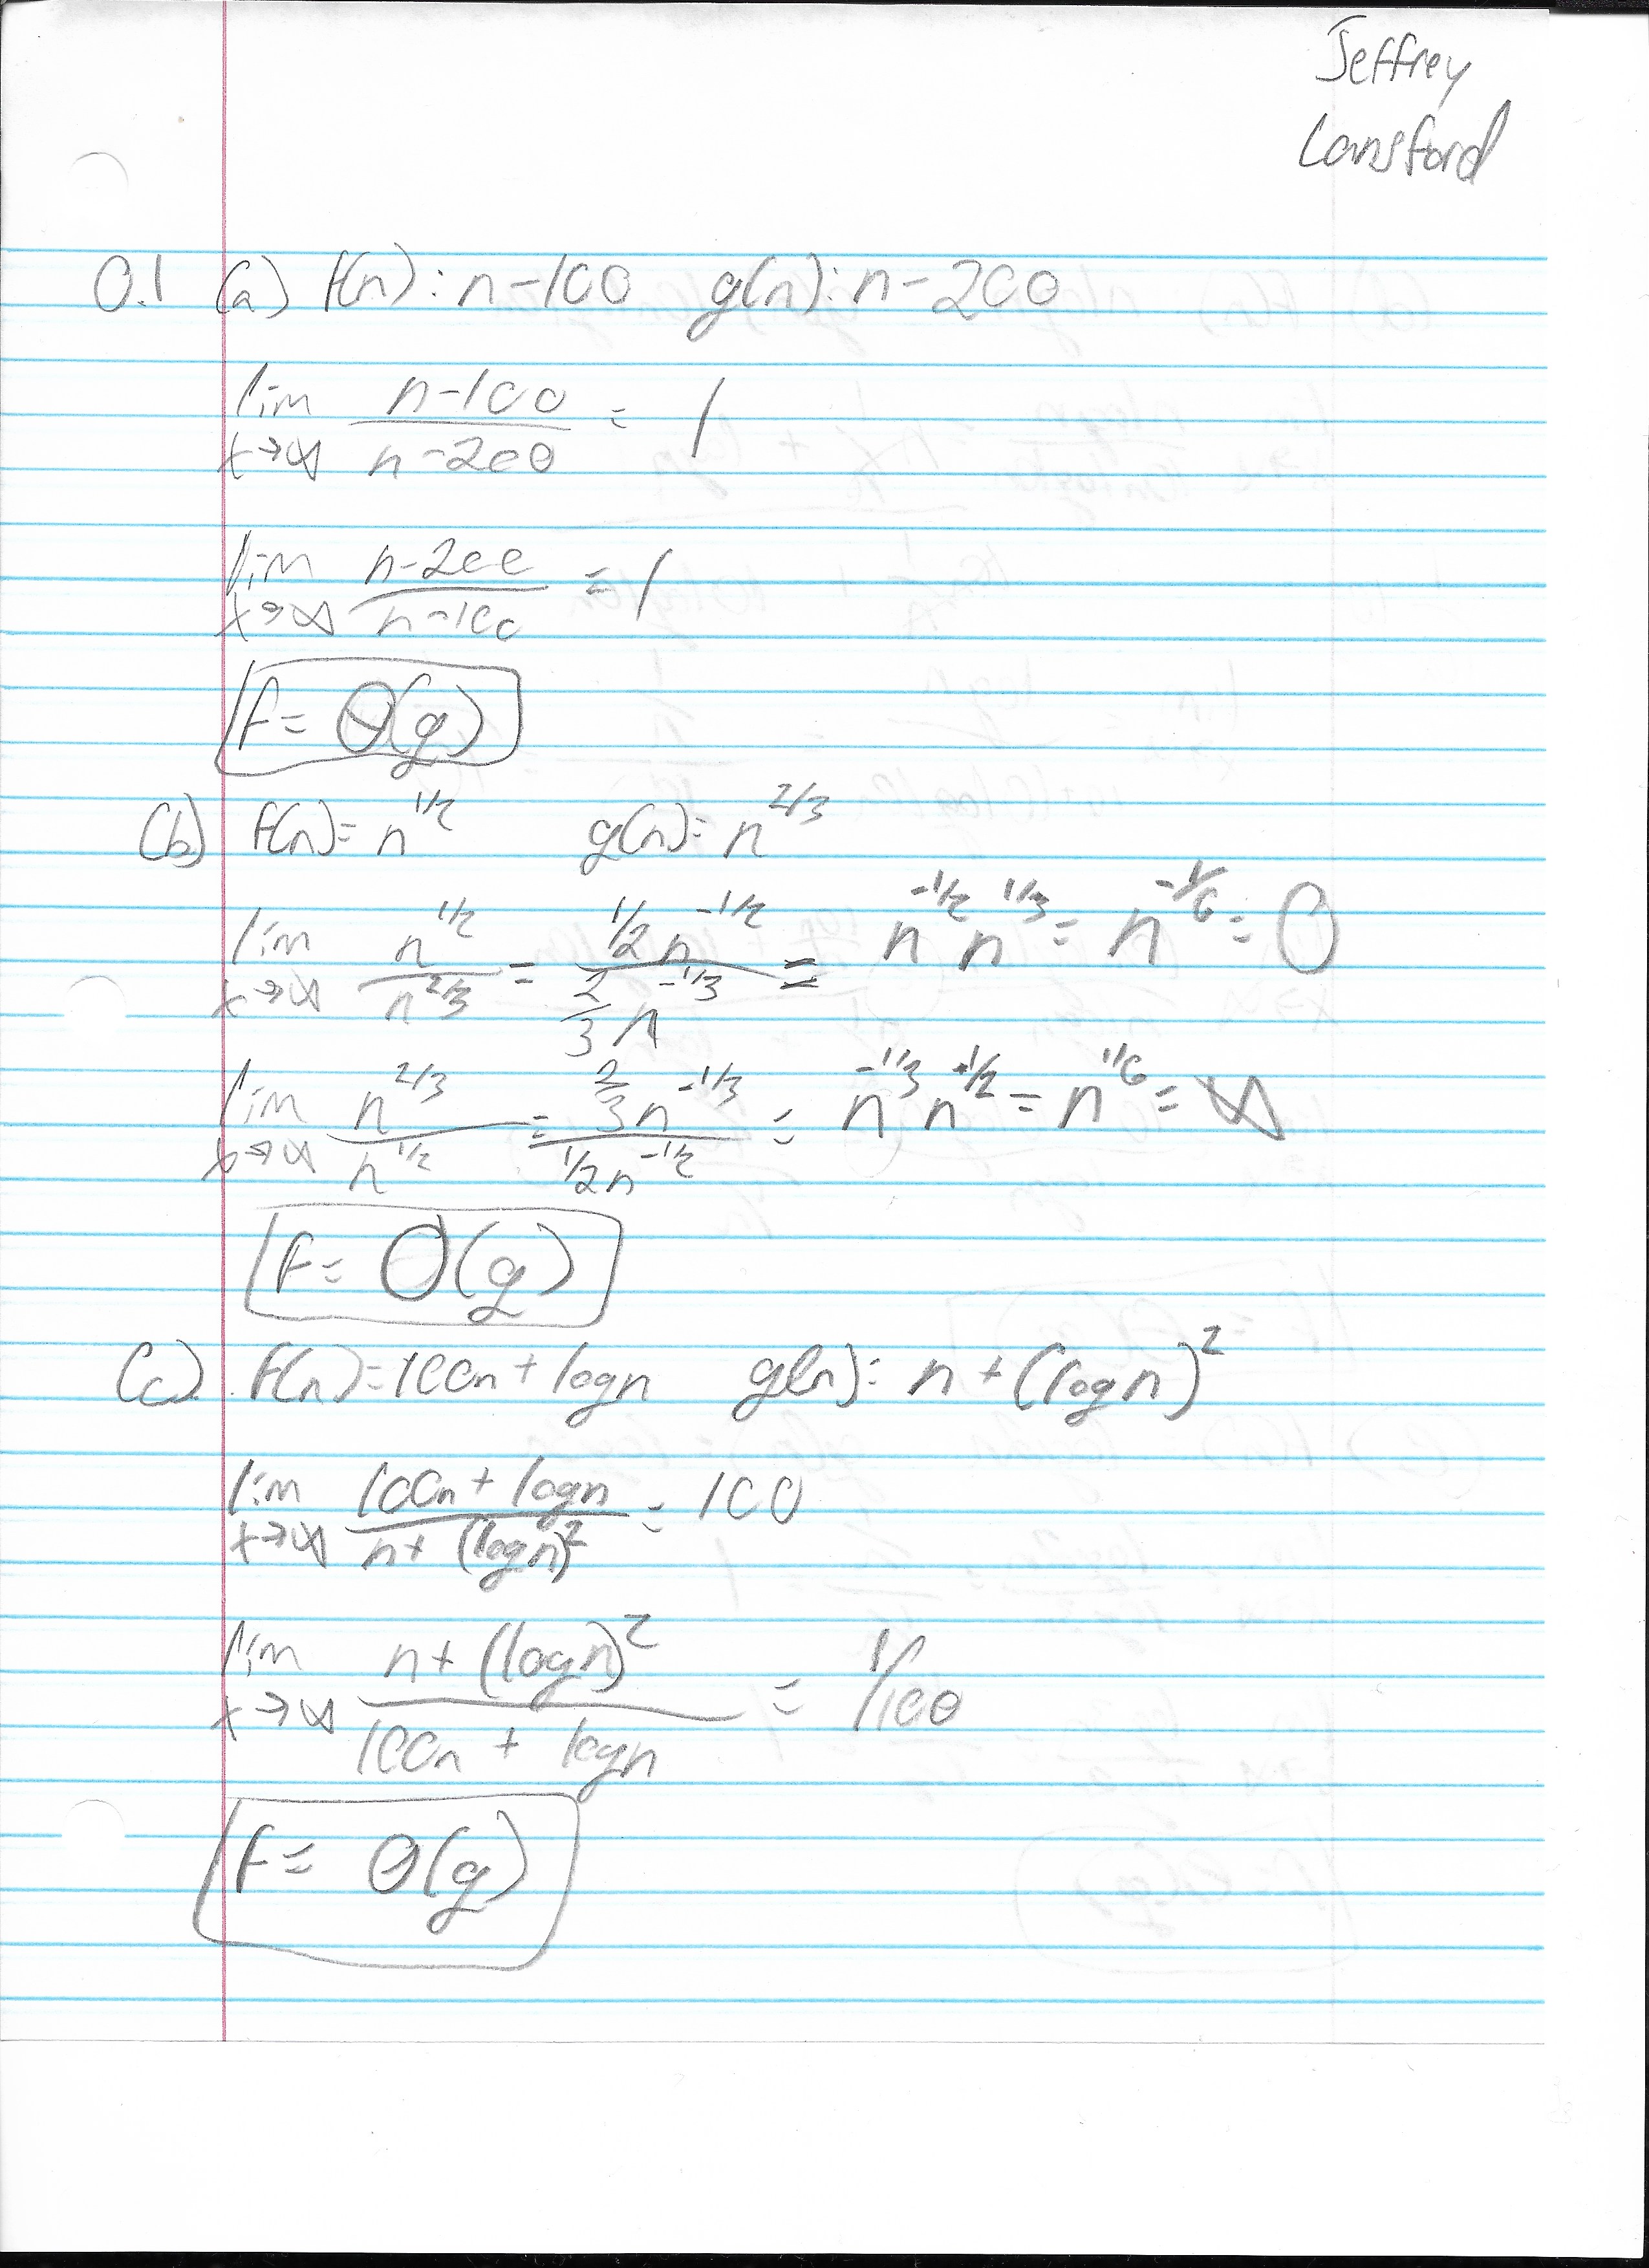 Jeffrey
Lansford
0.1 (a) f(n): n-100 g(n): n-200
lim x→∞ (n-100)/(n-200) = 1
lim x→∞ (n-200)/(n-100) = 1
f = Θ(g)
(b) f(n) = n^1/2 g(n) = n^2/3
lim x→∞ n^1/2 / n^2/3 = (1/2 n^-1/2) / (2/3 n^-1/3) = n^-1/2 n^1/3 = n^-1/6 = 0
lim x→∞ n^2/3 / n^1/2 = (2/3 n^-1/3) / (1/2 n^-1/2) = n^-1/3 n^1/2 = n^1/6 = ∞
f = O(g)
(c) f(n) = 100n + logn g(n) = n + (logn)^2
lim x→∞ (100n + logn) / (n + (logn)^2) = 100
lim x→∞ (n + (logn)^2) / (100n + logn) = 1/100
f = Θ(g)